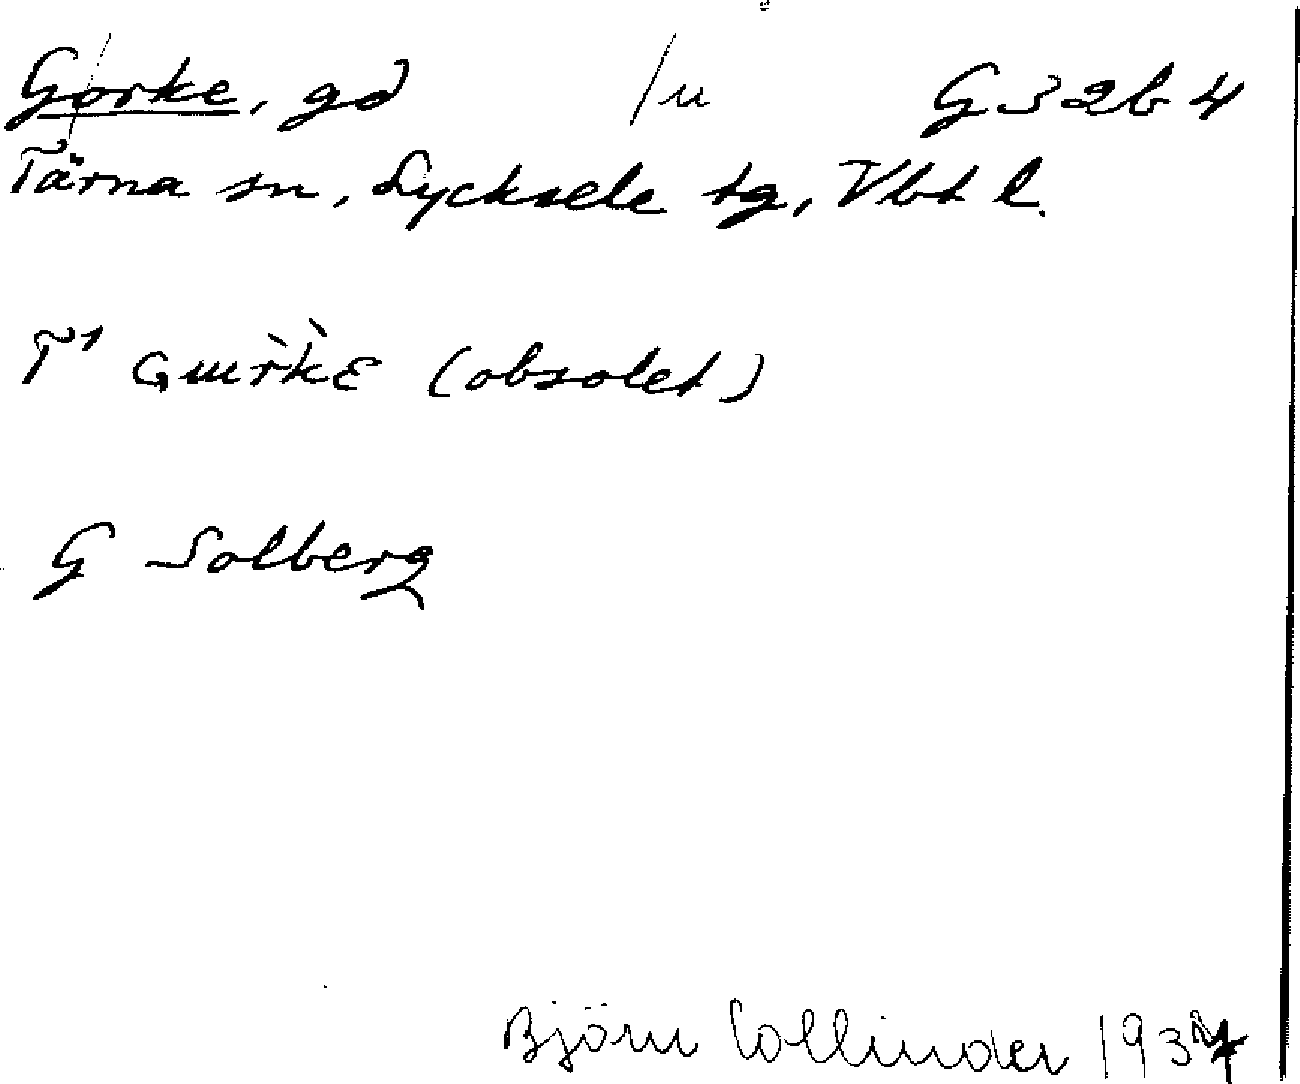 Gorke, gd /u G32b4
Tärna sn, Lycksele tg, Vbt l.
(obsolet)
G Solberg
Björn Collinder